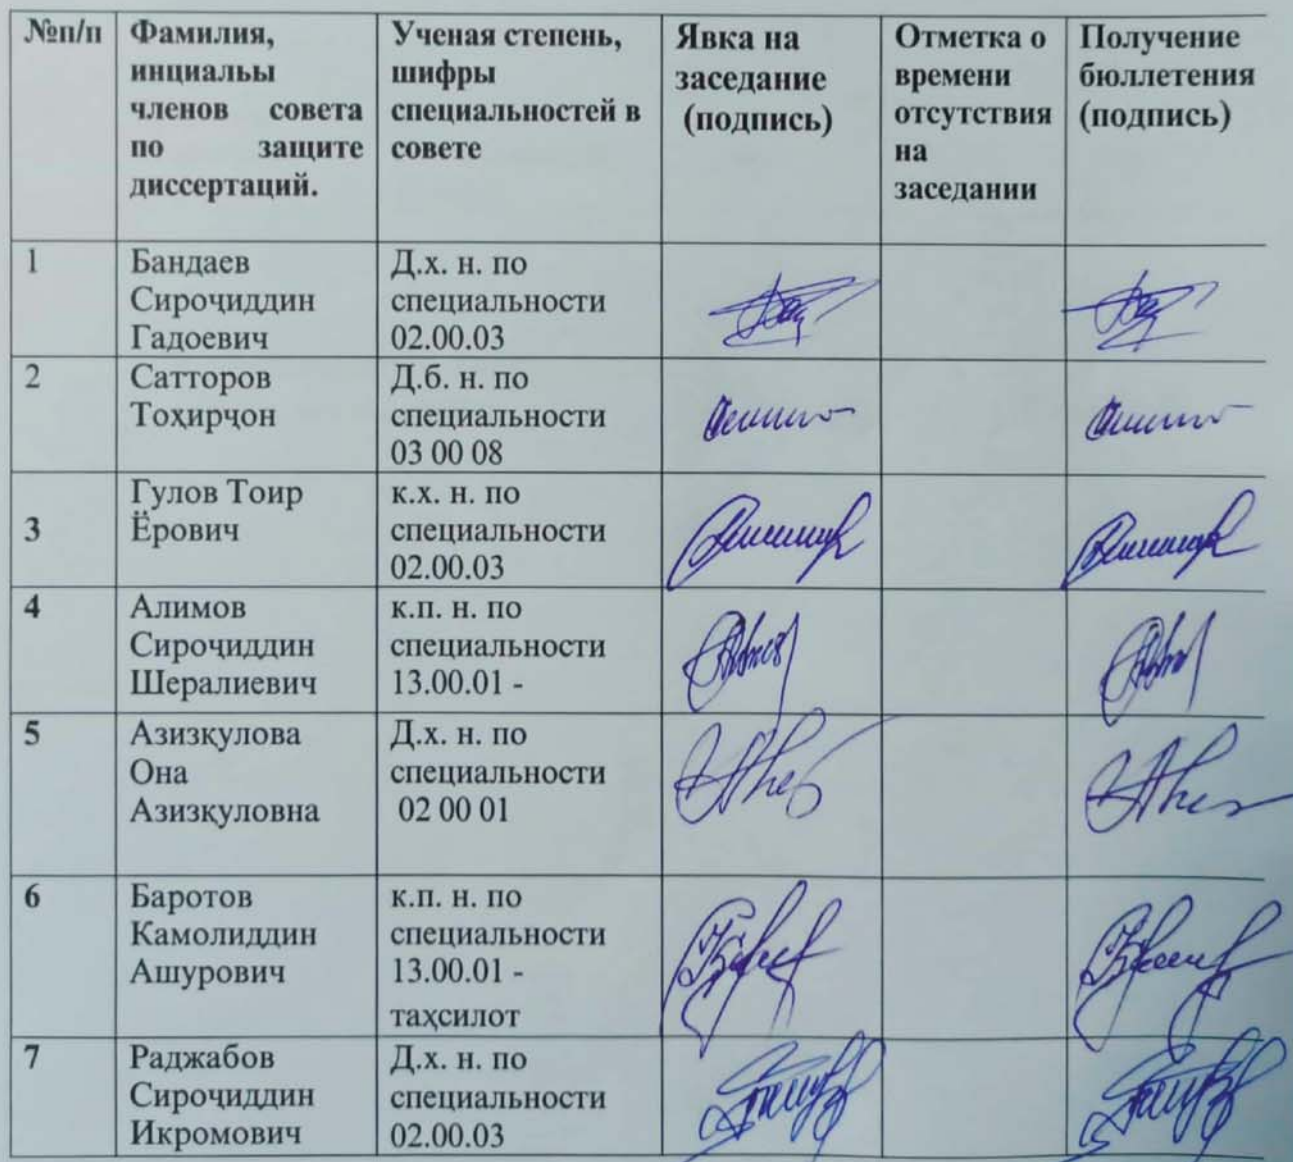 №п/п
Фамилия,
инциальы
членов совета
по защите
диссертаций.
Ученая степень,
шифры
специальностей в
совете
Явка на
заседание
(подпись)
Отметка о
времени
отсутствия
на
заседании
Получение
бюллетения
(подпись)
1
Бандаев
Сироҷиддин
Гадоевич
Д.х. н. по
специальности
02.00.03
2
Сатторов
Тоҳирҷон
Д.б. н. по
специальности
03 00 08
3
Гулов Тоир
Ёрович
к.х. н. по
специальности
02.00.03
4
Алимов
Сироҷиддин
Шералиевич
к.п. н. по
специальности
13.00.01 -
5
Азизқулова
Она
Азизқуловна
Д.х. н. по
специальности
02 00 01
6
Баротов
Камолиддин
Ашурович
к.п. н. по
специальности
13.00.01 -
таҳсилот
7
Раджабов
Сироҷиддин
Икромович
Д.х. н. по
специальности
02.00.03